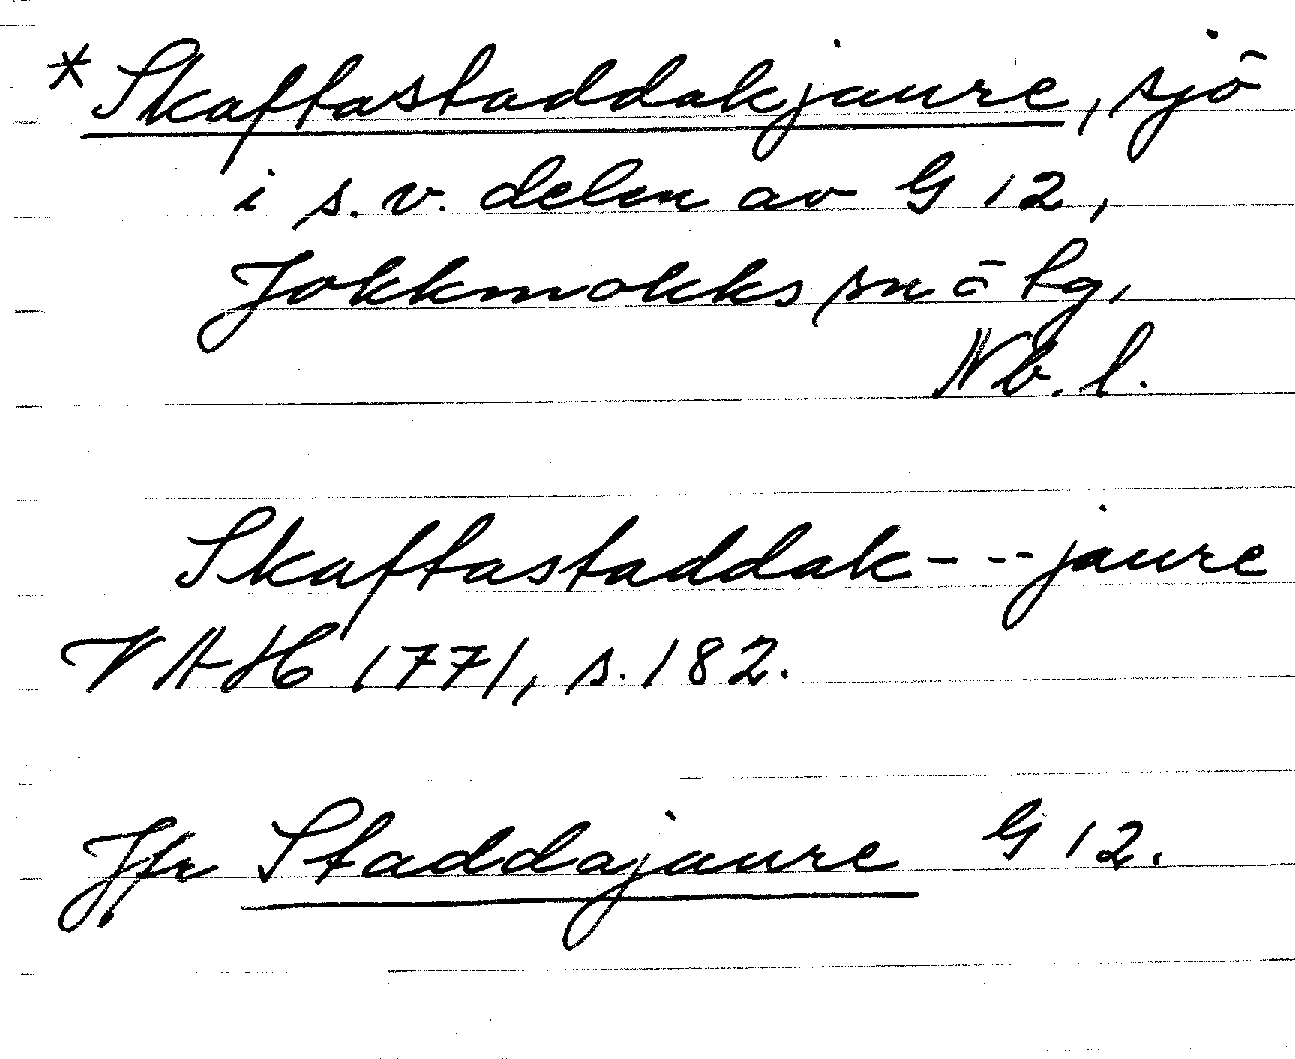 *Skaftastaddakjaure, sjö
i s.v. delen av G 12,
Jokkmokks sn o lg,
Nb. l.
Skaftastaddak---jaure
VAH 1771, s. 182.
Jfr Staddajaure G 12.